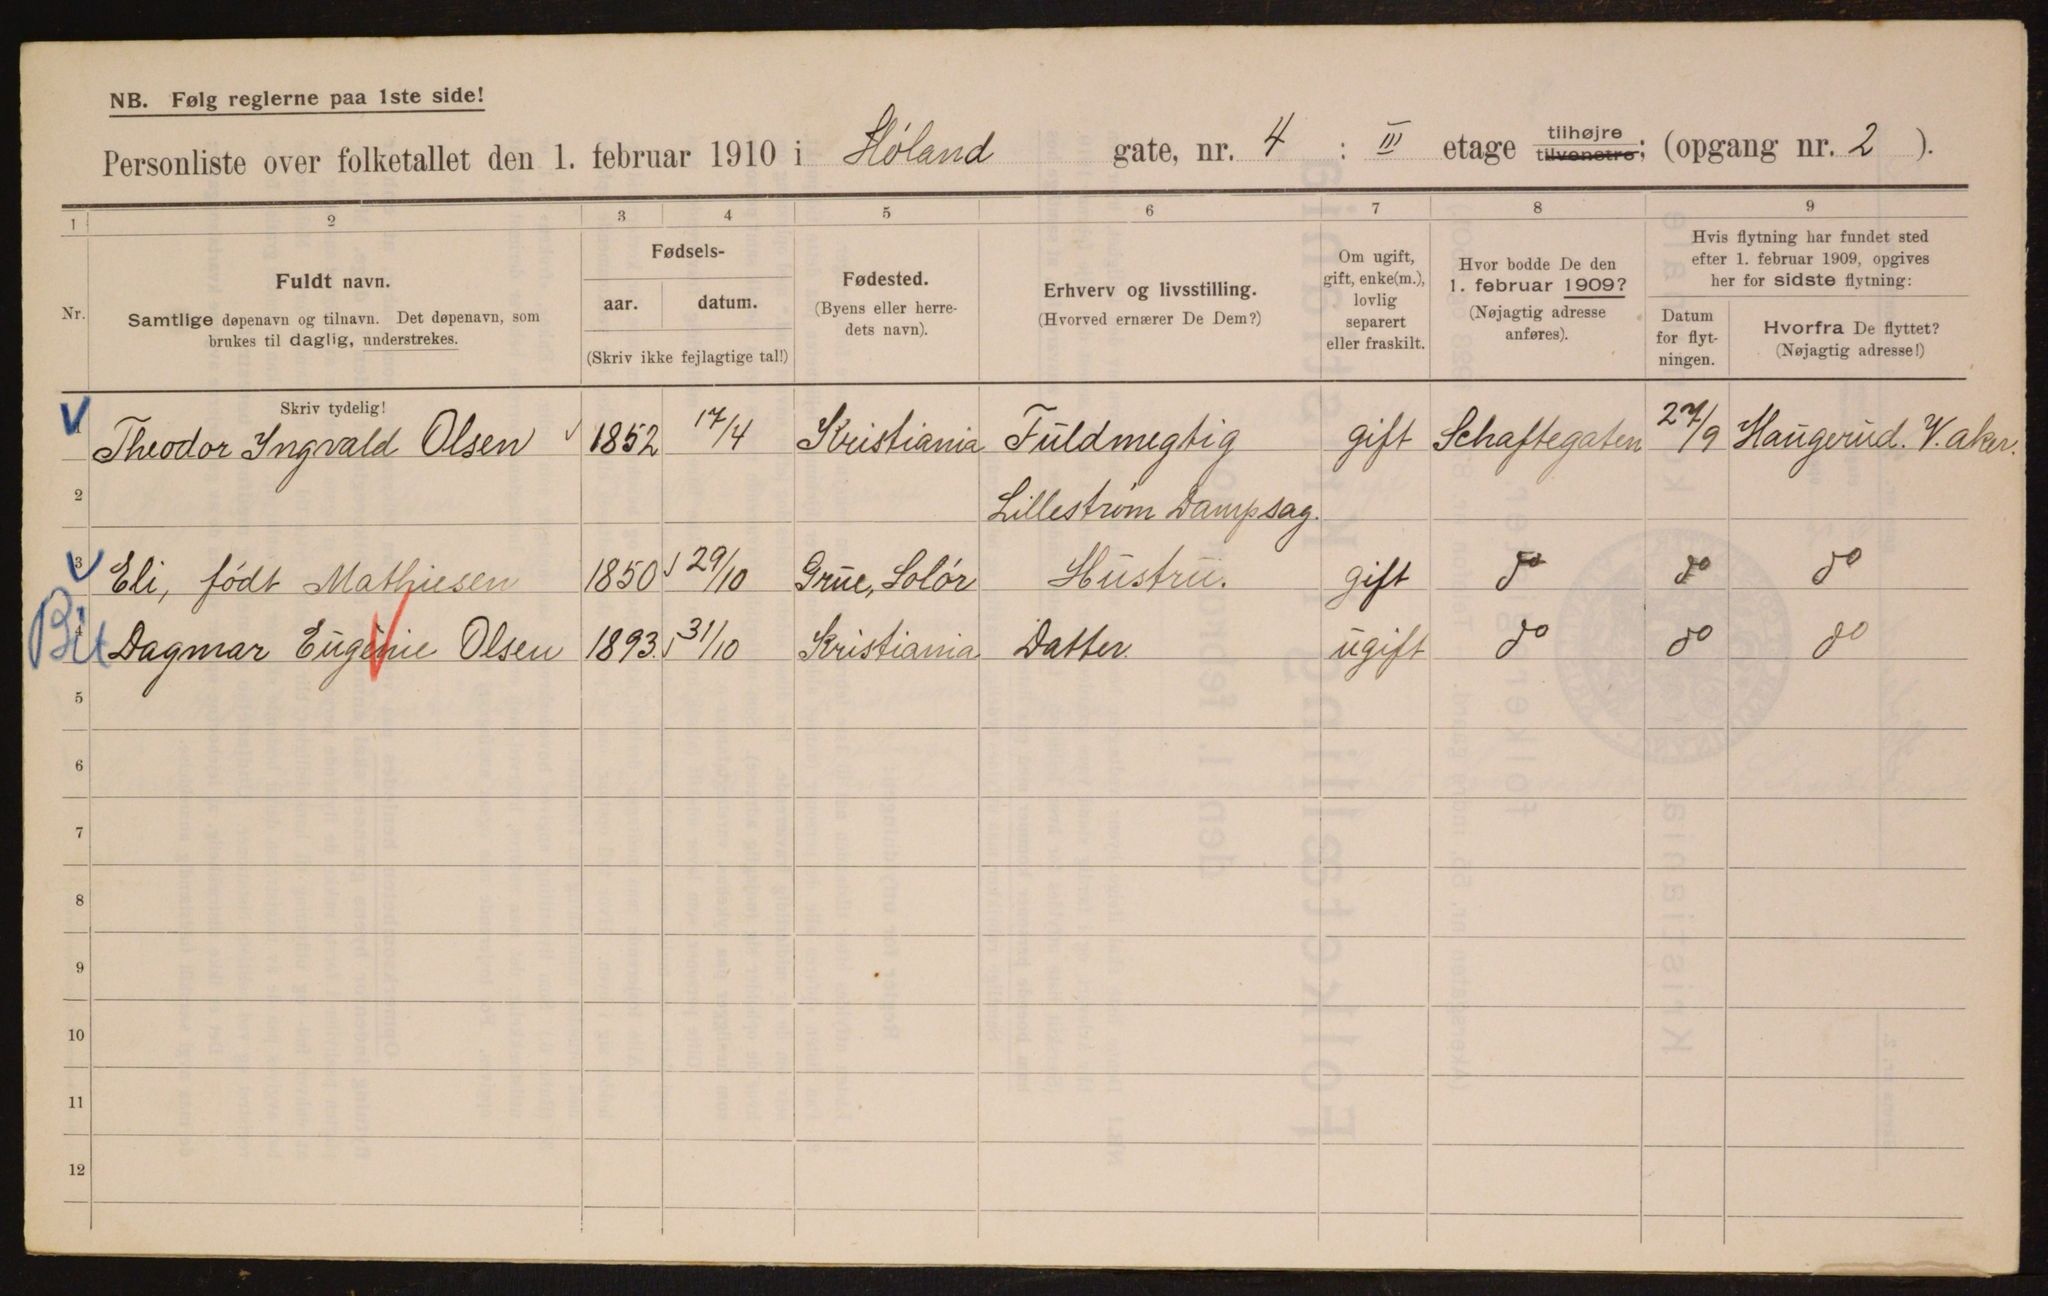 NB. Følg reglerne paa 1ste side!
Personliste over folketallet den 1. februar 1910 i Høland gate, nr. 4 : III etage tilhøjre tilvenstre; (opgang nr. 2 ).
1 2 3 4 5 6 7 8 9
Nr.
Fuldt navn.
Samtlige døpenavn og tilnavn. Det døpenavn, som
brukes til daglig, understrekes.
Fødsels-
aar. datum.
(Skriv ikke fejlagtige tal!)
Fødested.
(Byens eller herre-
dets navn).
Erhverv og livsstilling.
(Hvorved ernærer De Dem?)
Om ugift,
gift, enke(m.),
lovlig
separert
eller fraskilt.
Hvor bodde De den
1. februar 1909?
(Nøjagtig adresse
anføres).
Hvis flytning har fundet sted
efter 1. februar 1909, opgives
her for sidste flytning:
Datum
for flyt-
ningen.
Hvorfra De flyttet?
(Nøjagtig adresse!)
Skriv tydelig!
1 Theodor Ingvald Olsen 1852 17/4 Kristiania Fuldmegtig gift Schaftegaten 27/9 Haugerud. V. aker.
2 Lillestrøm Dampsag.
3 Eli, født Mathiesen 1850 29/10 Grue, Solør Hustru. gift do do do
Bit 4 Dagmar Eugenie Olsen 1893. 31/10 Kristiania Datter. ugift do do do
5
6
7
8
9
10
11
12